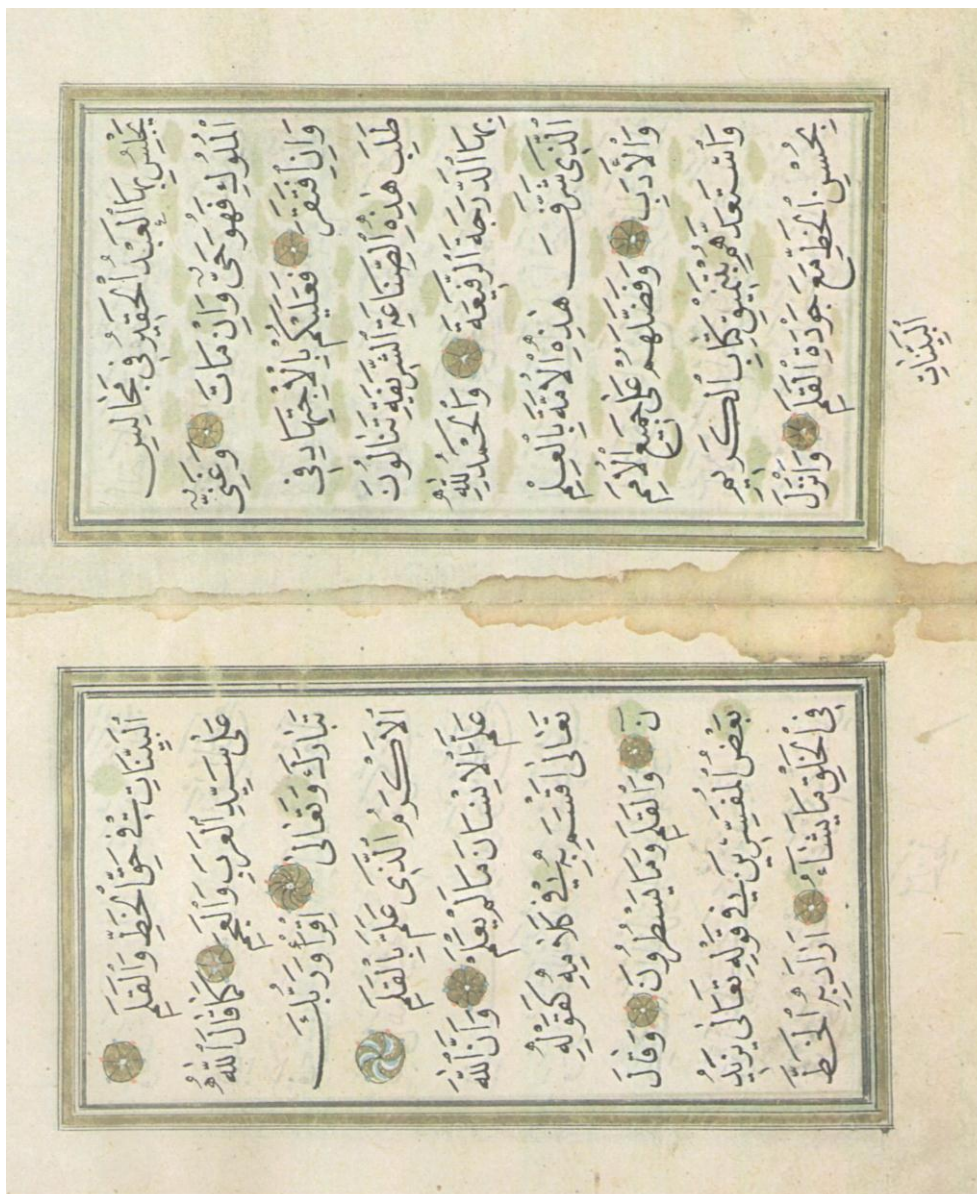 يَجْلِسُ بِهَا الْعَبْدُ الْحَقِيرُ فِي مَجَالِيسِ
الْمُلُوكِ فَهُوَ حَيٌّ وَاِنْ مَاتَ وَغَنِيٌّ
وَاِنِ افْتَقَرَ فَعَلَيْكُمْ بِالْاِجْتِهَادِ فِي
طَلَبِ هٰذِهِ الصِّنَاعَةِ الشَّرِيفَةِ تَنَالُونَ
بِهَا الدَّرَجَةَ الرَّفِيعَةَ وَالْحَمْدُ لِلّٰهِ
الَّذِي شَرَّفَ هٰذِهِ الْاُمَّةَ بِالْعِلْمِ
وَالْاَدَبِ وَفَضَّلَهُمْ عَلَى جَمِيعِ الْاُمَمِ
وَاسْتَعَدَّهُمْ بِتَنْمِيقِ كِتَابِ الْكَرِيمِ
بِحُسْنِ الْخَطِّ مَعَ جَوْدَةِ الْقَلَمِ وَاَنْزَلَ
الْبَيِّنَاتِ
الْبَيِّنَاتِ فِي حَقِّ الْخَطِّ وَالْقَلَمِ
عَلَى سَيِّدِ الْعَرَبِ وَالْعَجَمِ كَمَا قَالَ اللّٰهُ
تَبَارَكَ وَتَعَالَى اِقْرَأْ وَرَبُّكَ
الْاَكْرَمُ الَّذِي عَلَّمَ بِالْقَلَمِ
عَلَّمَ الْاِنْسَانَ مَا لَمْ يَعْلَمْ وَاَنَّ اللّٰهَ
تَعَالَى اَقْسَمَ بِهِ فِي كَلَامِهِ كَقَوْلِهِ
نَ وَالْقَلَمِ وَمَا يَسْطُرُونَ وَقَالَ
بَعْضُ الْمُفَسِّرِينَ فِي قَوْلِهِ تَعَالَى يَزِيدُ
فِي الْخَلْقِ مَا يَشَاءُ اَرَادَ بِهِ الْخَطَّ